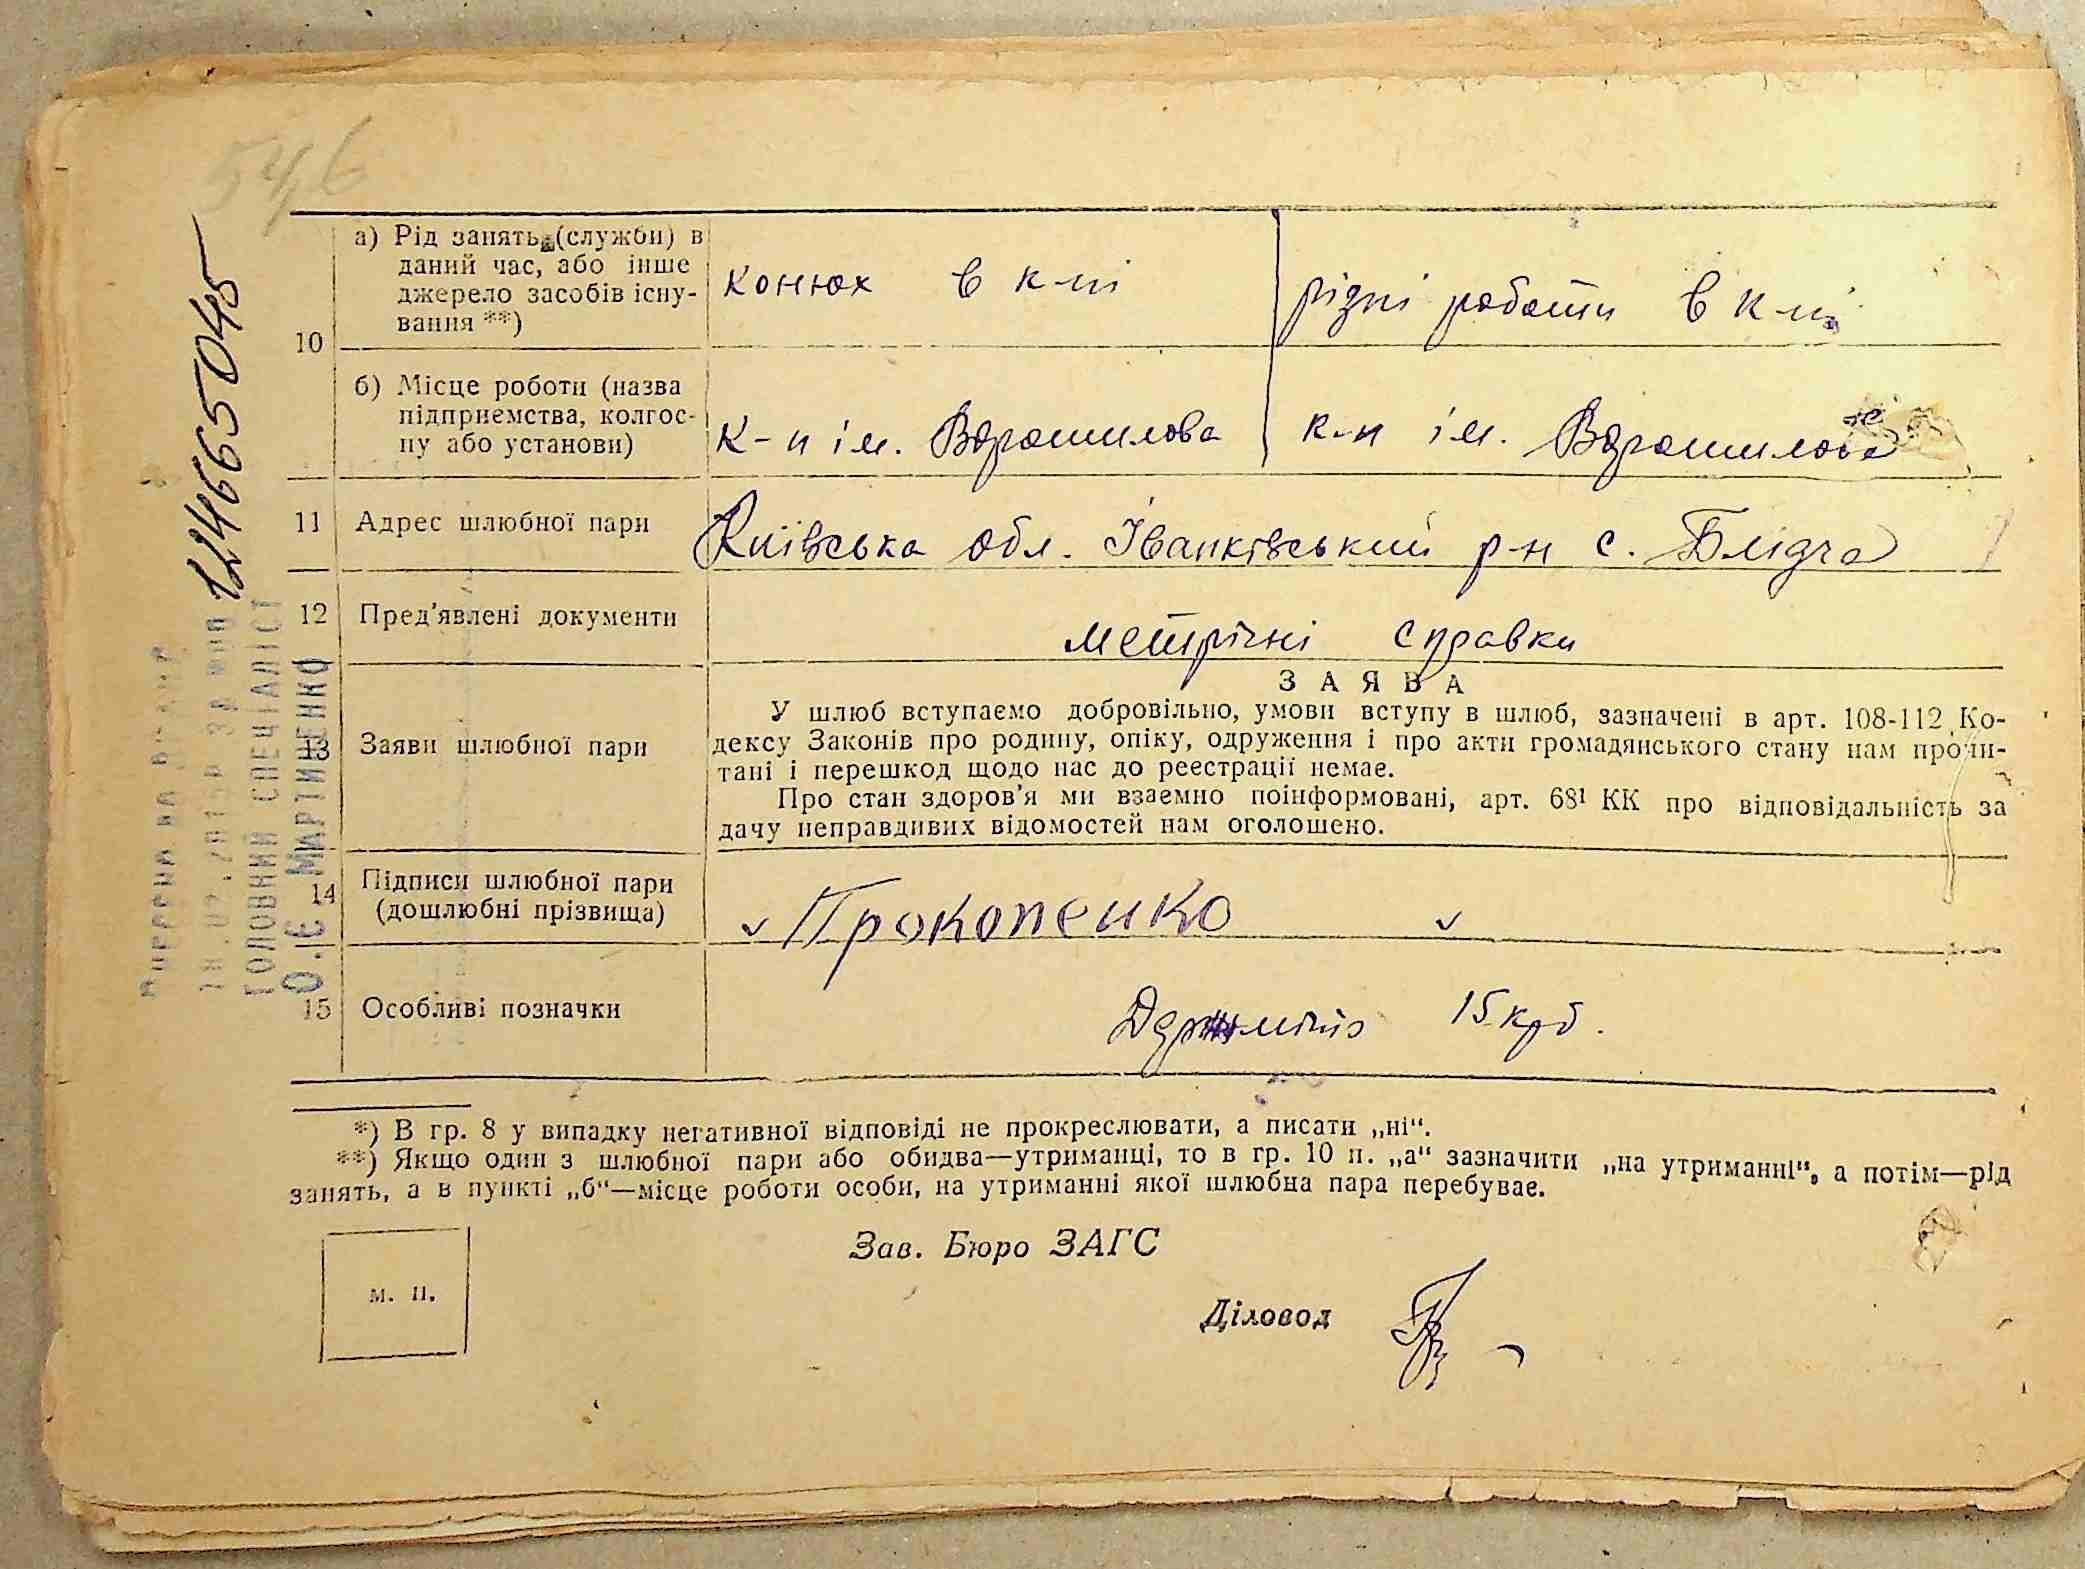 54б
а) Рід занять (служби) в
даний час, або інше
джерело засобів існу-
вання **)
конюх в к-пі
різні роботи в к-пі
10
б) Місце роботи (назва
підприємства, колгос-
пу або установи)
к-п ім. Ворошилова
к-п ім. Ворошилова
11
Адрес шлюбної пари
Київська обл. Іванківський р-н с. Блідча
12
Пред'явлені документи
метрічні справки
13
Заяви шлюбної пари
ЗАЯВА
У шлюб вступаємо добровільно, умови вступу в шлюб, зазначені в арт. 108-112 Ко-
дексу Законів про родину, опіку, одруження і про акти громадянського стану нам прочи-
тані і перешкод щодо нас до реєстрації немає.
Про стан здоров'я ми взаємно поінформовані, арт. 68¹ КК про відповідальність за
дачу неправдивих відомостей нам оголошено.
14
Підписи шлюбної пари
(дошлюбні прізвища)
Прокопенко
15
Особливі позначки
15 крб.
*) В гр. 8 у випадку негативної відповіді не прокреслювати, а писати „ні“.
**) Якщо один з шлюбної пари або обидва—утриманці, то в гр. 10 п. „а“ зазначити „на утриманні“, а потім—рід
занять, а в пункті „б“—місце роботи особи, на утриманні якої шлюбна пара перебуває.
Зав. Бюро ЗАГС
м. п.
Діловод
1246655045
ГОЛОВНИЙ СПЕЦІАЛІСТ
О.Є МАРТИНЕНКО